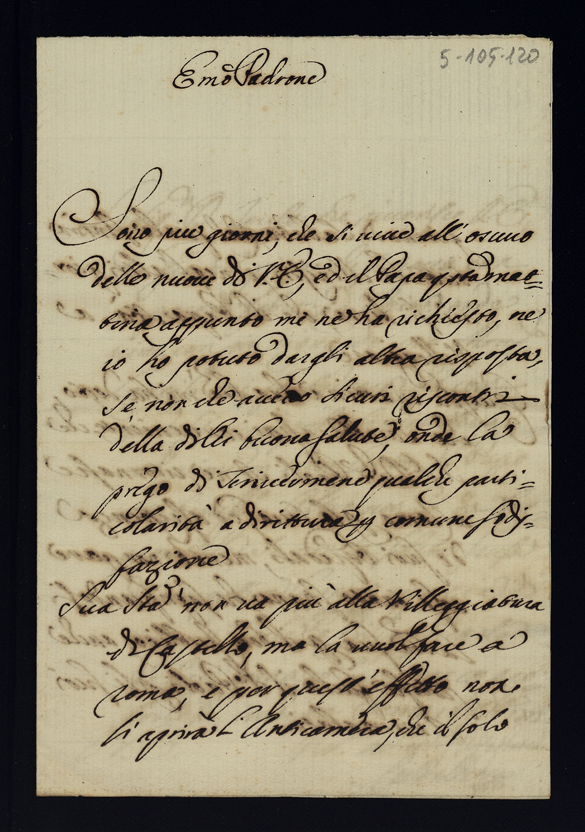 5-105-120
Emo Padrone
Sono più giorni, che si vive all'oscuro
delle nuove di V.E., ed il Papa questa mat=
tina appunto me ne ha richiesto, ne
io ho potuto dargli altra risposta,
se non che avevo sicuri riscontri
della di lei buona salute, onde la
prego di scrivermene qualche parti=
colarità a dirittura p comune sodis=
fazione
Sua Stà non va più alla Villeggiatura
di Castello, ma la vuol fare a
Roma, e per quest'effetto non
si aprirà l'Anticamera, che il solo